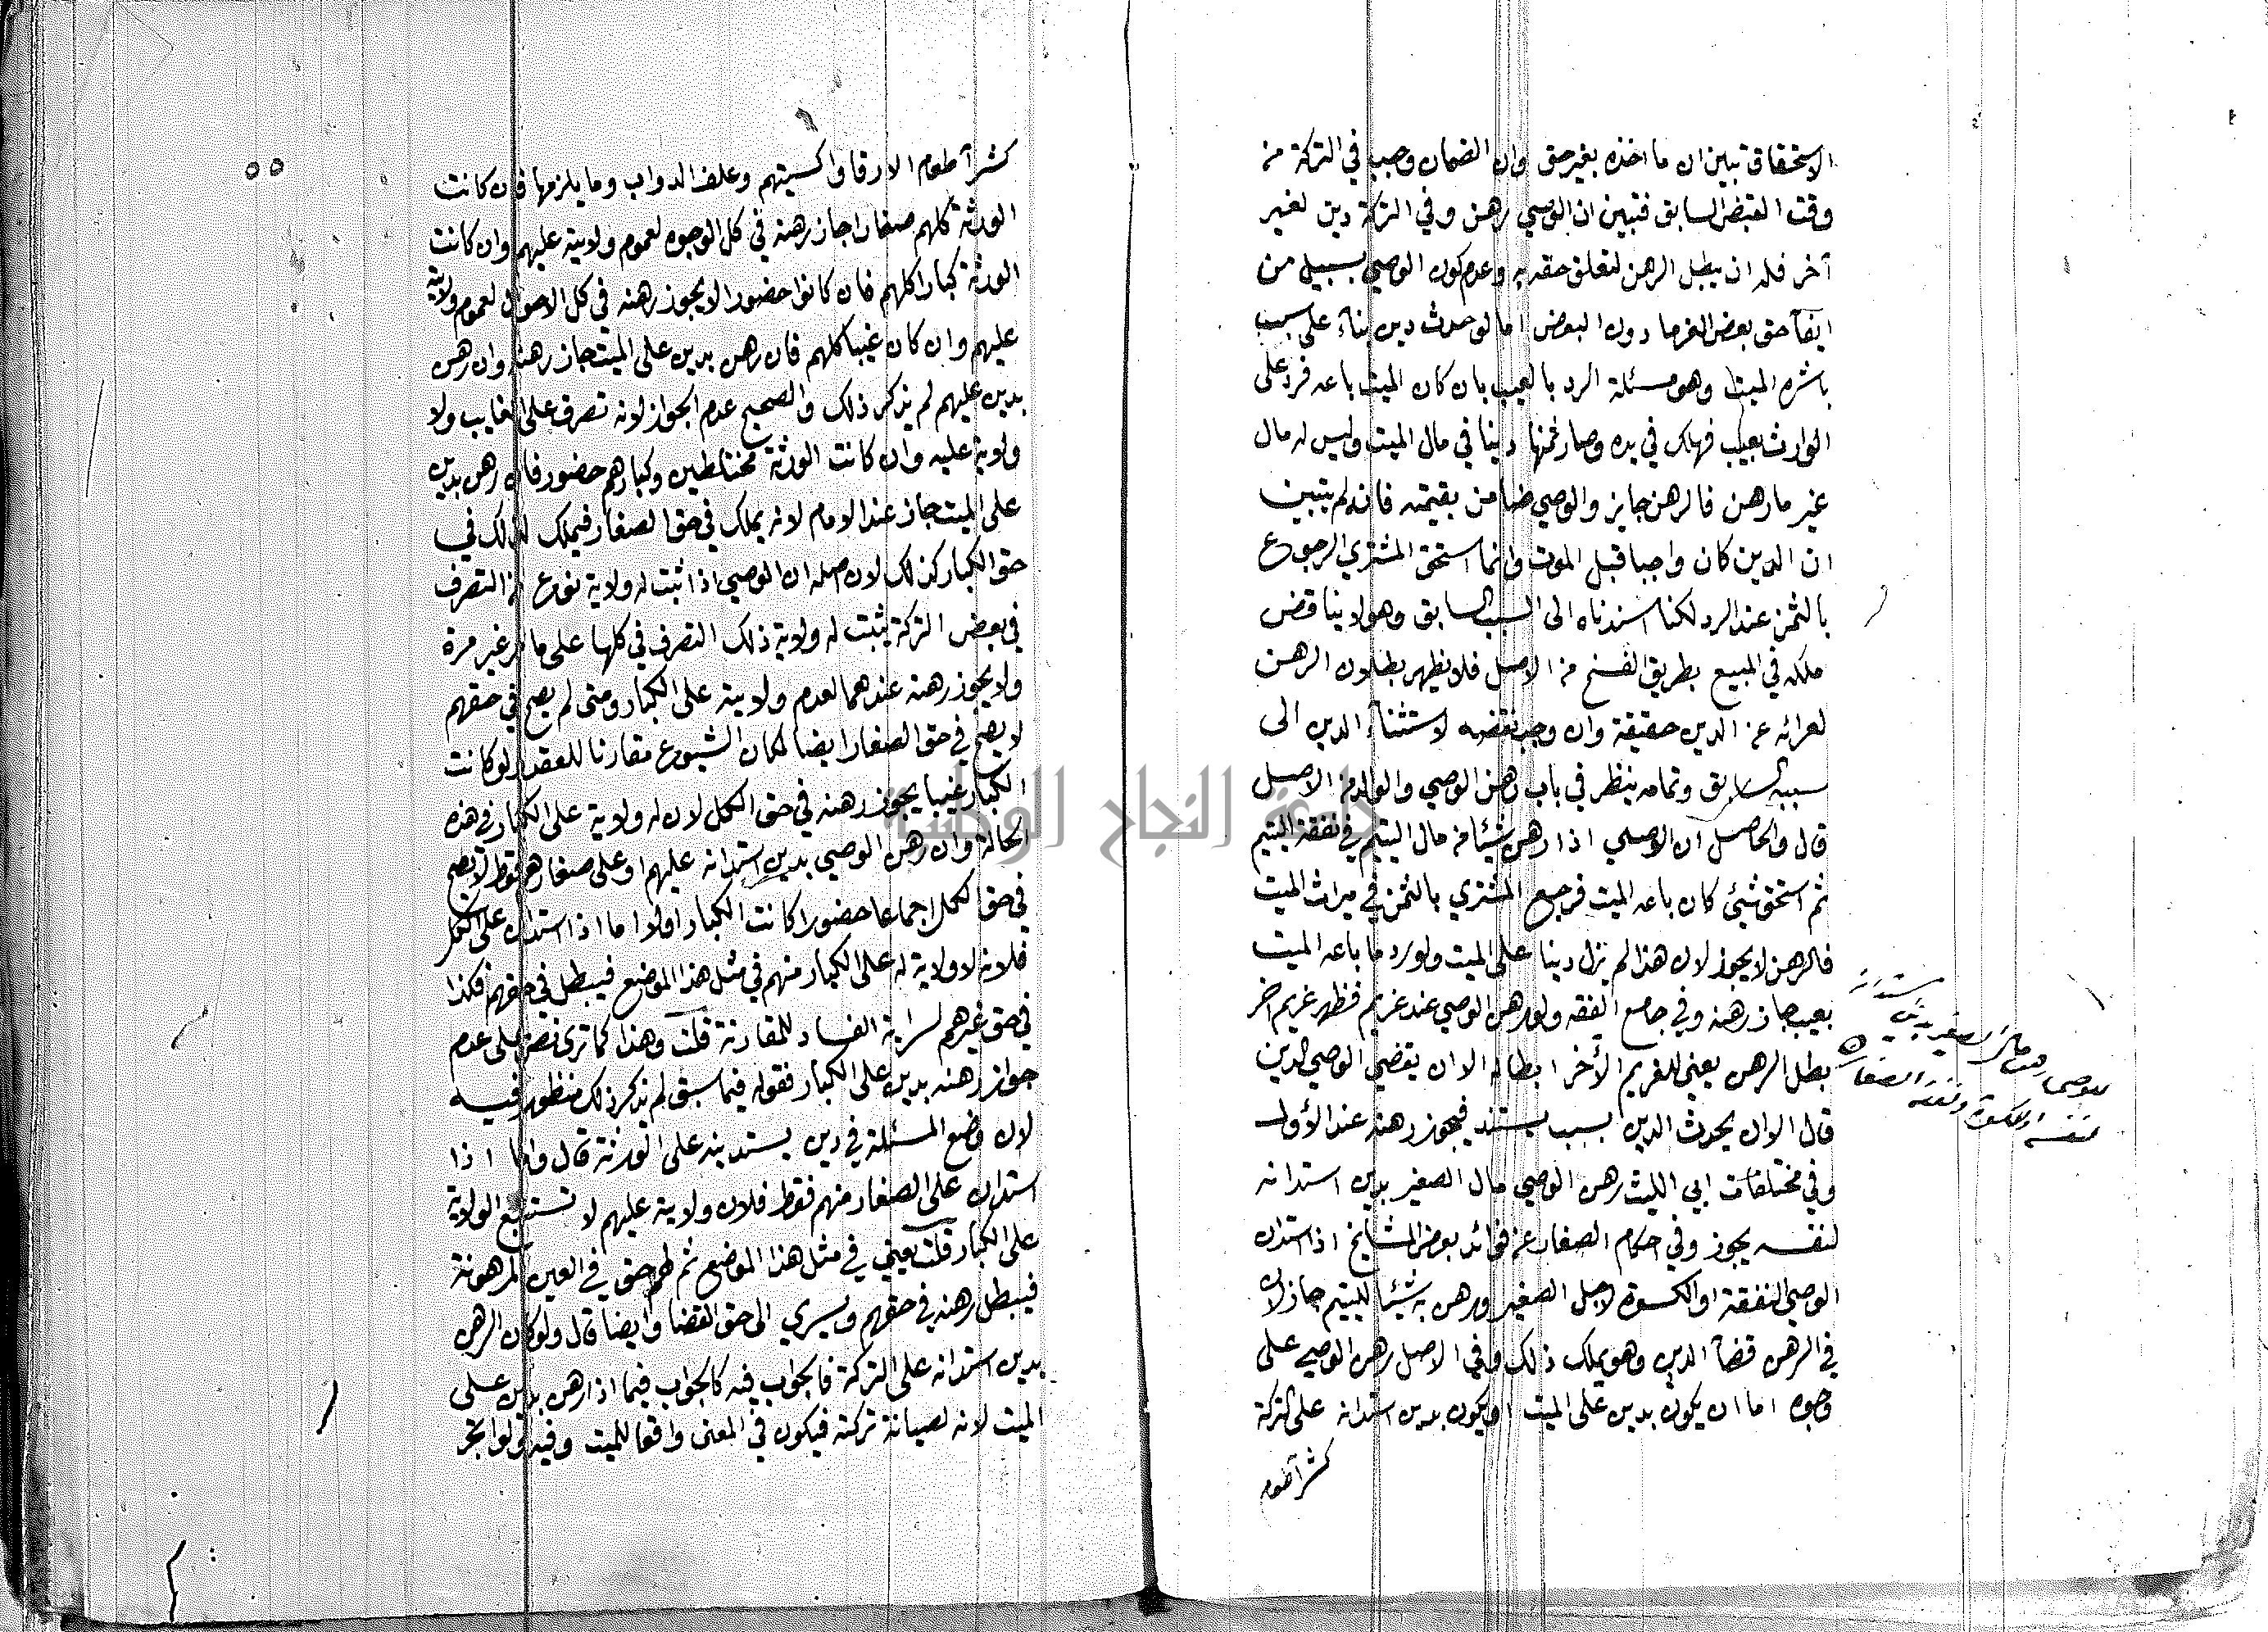 الاستحقاق تبين ان ما اخذه بغير حق وان الضمان وجب في التركة من
وقت القبض السابق فتبين ان الوصي رهن وفي التركة دين لغير
آخر فله ان يبطل الرهن لتعلق حقه به وعدم كون الوصي بسبيل من
ايفآ حق بعض الغرما دون البعض اما لو حدث دين بناء على سبب
باشره الميت وهو مسئلة الرد بالعيب بان كان الميت باعه فرد على
الوارث بعيب فهلك في يده وصار ثمنها دينا في مال الميت وليس له مال
غير ما رهن فالرهن جايز والوصي ضامن بقيمته فانه لم يتبين
ان الدين كان واجبا قبل الموت وانما استحق المشتري الرجوع
بالثمن عند الرد لكنا اسندناه الى السبب السابق وهو لا يناقض
ملكه في المبيع بطريق الفسخ من الاصل فلا يظهر بطلان الرهن
لعرائه عن الدين حقيقة وان وجب نقضه لاستثنآ الدين الى
سببه السابق وتمامه ينظر في باب رهن الوصي والوالد من الاصل
قال والحاصل ان الوصي اذا رهن شيئا من مال اليتيم في نفقة اليتيم
ثم استحق شيئ كان باعه الميت فرجع المشتري بالثمن في ميراث الميت
فالرهن لا يجوز لان هذا لم يزل دينا على الميت ولو رد ما باعه الميت
بعيب جاز رهنه وفي جامع الفقه ولو رهن الوصي عند غريم فظهر غريم اخر
بطل الرهن يعني للغريم الأخر ابطاله الا ان يقضي الوصي الدين
قال الا ان يحدث الدين بسبب يستند فيجوز رهنه عند الأول
وفي مختلفات ابي الليث رهن الوصي مال الصغير بدين استدانه
لنفسه يجوز وفي احكام الصغار عن فوائد بعض المشايخ اذا استدان
الوصي لنفقة او الكسوة لاجل الصغير ورهن به شيئا لليتيم جاز لان
في الرهن قضآ الدين وهو يملك ذلك وفي الاصل رهن الوصي على
وجوه اما ان يكون بدين على الميت او يكون بدين استدانه على التركة
كشرآ طعام
للوصي رهن مال الصغير بدين استدانه
لنفسه او لكسوة ونفقة الصغار
٥٥
كشرآ طعام الارقا واكسيتهم وعلف الدواب وما يلزمها فان كانت
الورثة كلهم صغارا جاز رهنه في كل الوجوه لعموم ولايته عليهم وان كانت
الورثة كبارا كلهم فان كانوا حضورا لا يجوز رهنه في كل الاحوال لعموم ولايته
عليهم وان كان غيبا كلهم فان رهن بدين على الميت جاز رهنه وان رهن
بدين عليهم لم يذكر ذلك والصحيح عدم الجواز لانه تصرف على الغايب ولا
ولاية عليه وان كانت الورثة مختلطين وكبارهم حضور فان رهن بدين
على الميت جاز عند الامام لانه يملك في حق الصغار فيملك لذلك في
حق الكبار كذلك لان اصله ان الوصي اذا ثبت له ولاية نوع من التصرف
في بعض التركة يثبت له ولاية ذلك التصرف في كلها على ما مر غير مرة
ولا يجوز رهنه عندهما لعدم ولايته على الكبار ومتى لم يصح في حقهم
لا يصح في حق الصغار ايضا لمكان الشيوع مقارنا للعقد ولو كانت
الكبار غيبا يجوز رهنه في حق الكل لان له ولاية على الكبار في هذه
الحالة وان رهن الوصي بدين استدانه عليهم او على صغارهم فقط لا يصح
في حق الكل اجماعا حضورا كانت الكبار اولا اما اذا استدان على الكل
فلانه لا ولاية له على الكبار منهم في مثل هذا الموضع فيبطل في حقهم فكذا
في حق غيرهم لسراية الفساد للمقارنة قلت وهذا كما ترى نص على عدم
جواز رهنه بدين على الكبار فقوله فيما سبق لم يذكر ذلك منظور فيه
لان وضع المسئلة في دين يستدينه على الورثة قال واما اذا
استدان على الصغار منهم فقط فلان ولايته عليهم لا تستتبع الولاية
على الكبار قلت يعني في مثل هذا الموضع ثم لهم حق في العين المرهونة
فيبطل رهنه في حقهم ويسري الى حق القضا وايضا قال ولو كان الرهن
بدين استدانه على التركة فالجواب فيه كالجواب فيما اذا رهن بدين على
الميت لانه لصيانة تركته فيكون في المعنى واقعا للميت وفيه لو اتجر
جامعة النجاح الوطنية